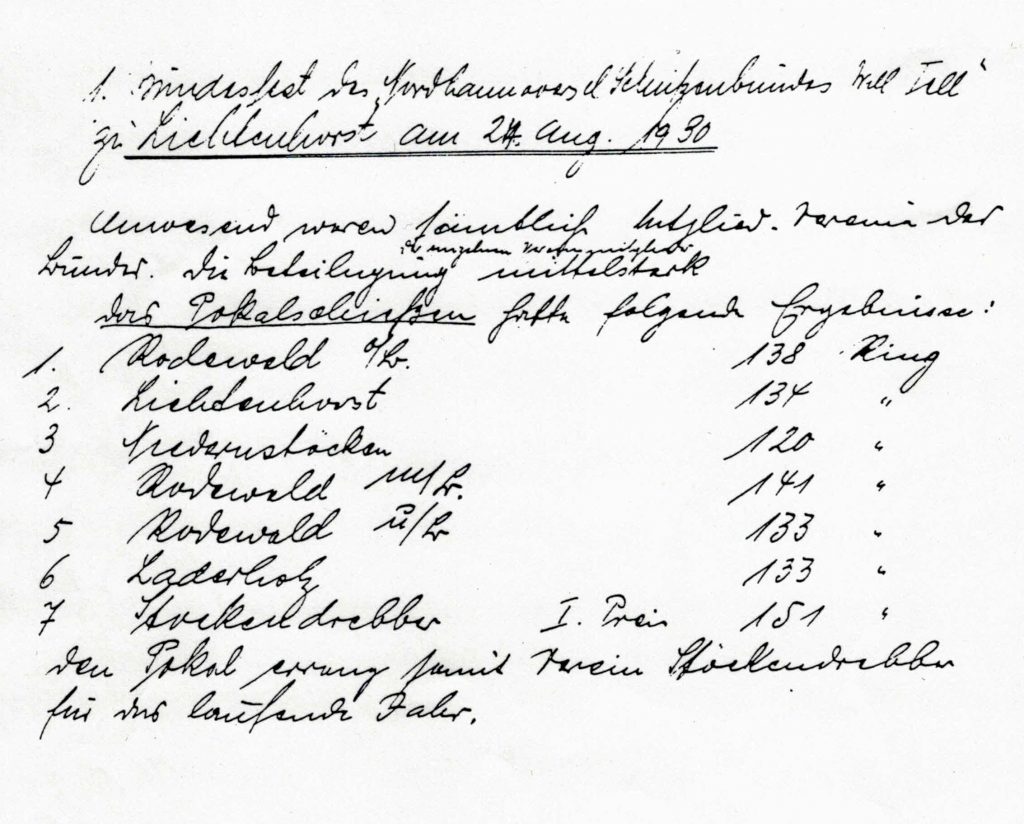 1. Bundesfest des „Nordhannoversch Schützenbundes Will Tell"
zu Lichtenhorst am 24. Aug. 1930
Anwesend waren sämtlich Mitglied. Vereine der
der einzelnen Vereinsmitglieder
Bünder. Die Beteiligung mittelstark
das Pokalschießen hatte folgende Ergebnisse:
1. Rodewald o/Br. 138 Ring
2. Lichtenhorst 134 "
3 Niedernstöcken 120 "
4 Rodewald m/Br. 141 "
5 Rodewald u/Br 133 "
6 Laderholz 133 "
7 Stöckendrebber I. Preis 151 "
den Pokal errang somit Verein Stöckendrebber
für das laufende Jahr.